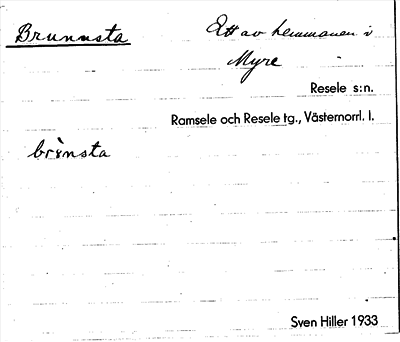 Brunnsta
Ett av hemmanen i
Myre
Resele s:n.
Ramsele och Resele tg., Västernorrl. l.
brùnsta
Sven Hiller 1933